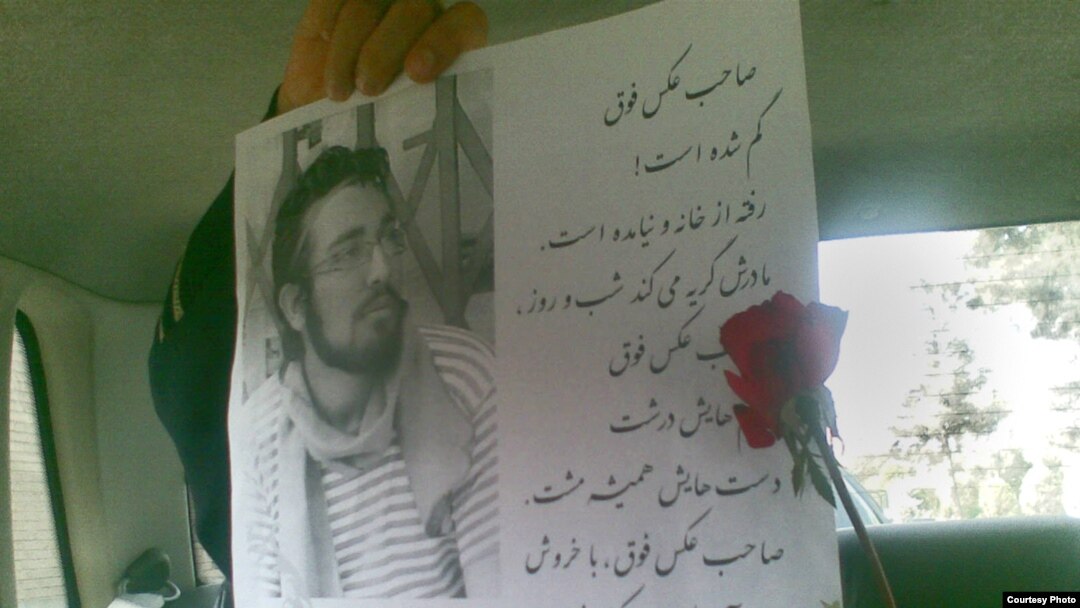 صاحب عکس فوق
گم شده است!
رفته از خانه و نیامده است.
مادرش گریه می کند شب و روز،
عکس فوق
هایش درشت
دست هایش همیشه مشت.
صاحب عکس فوق، با خروش
Courtesy Photo